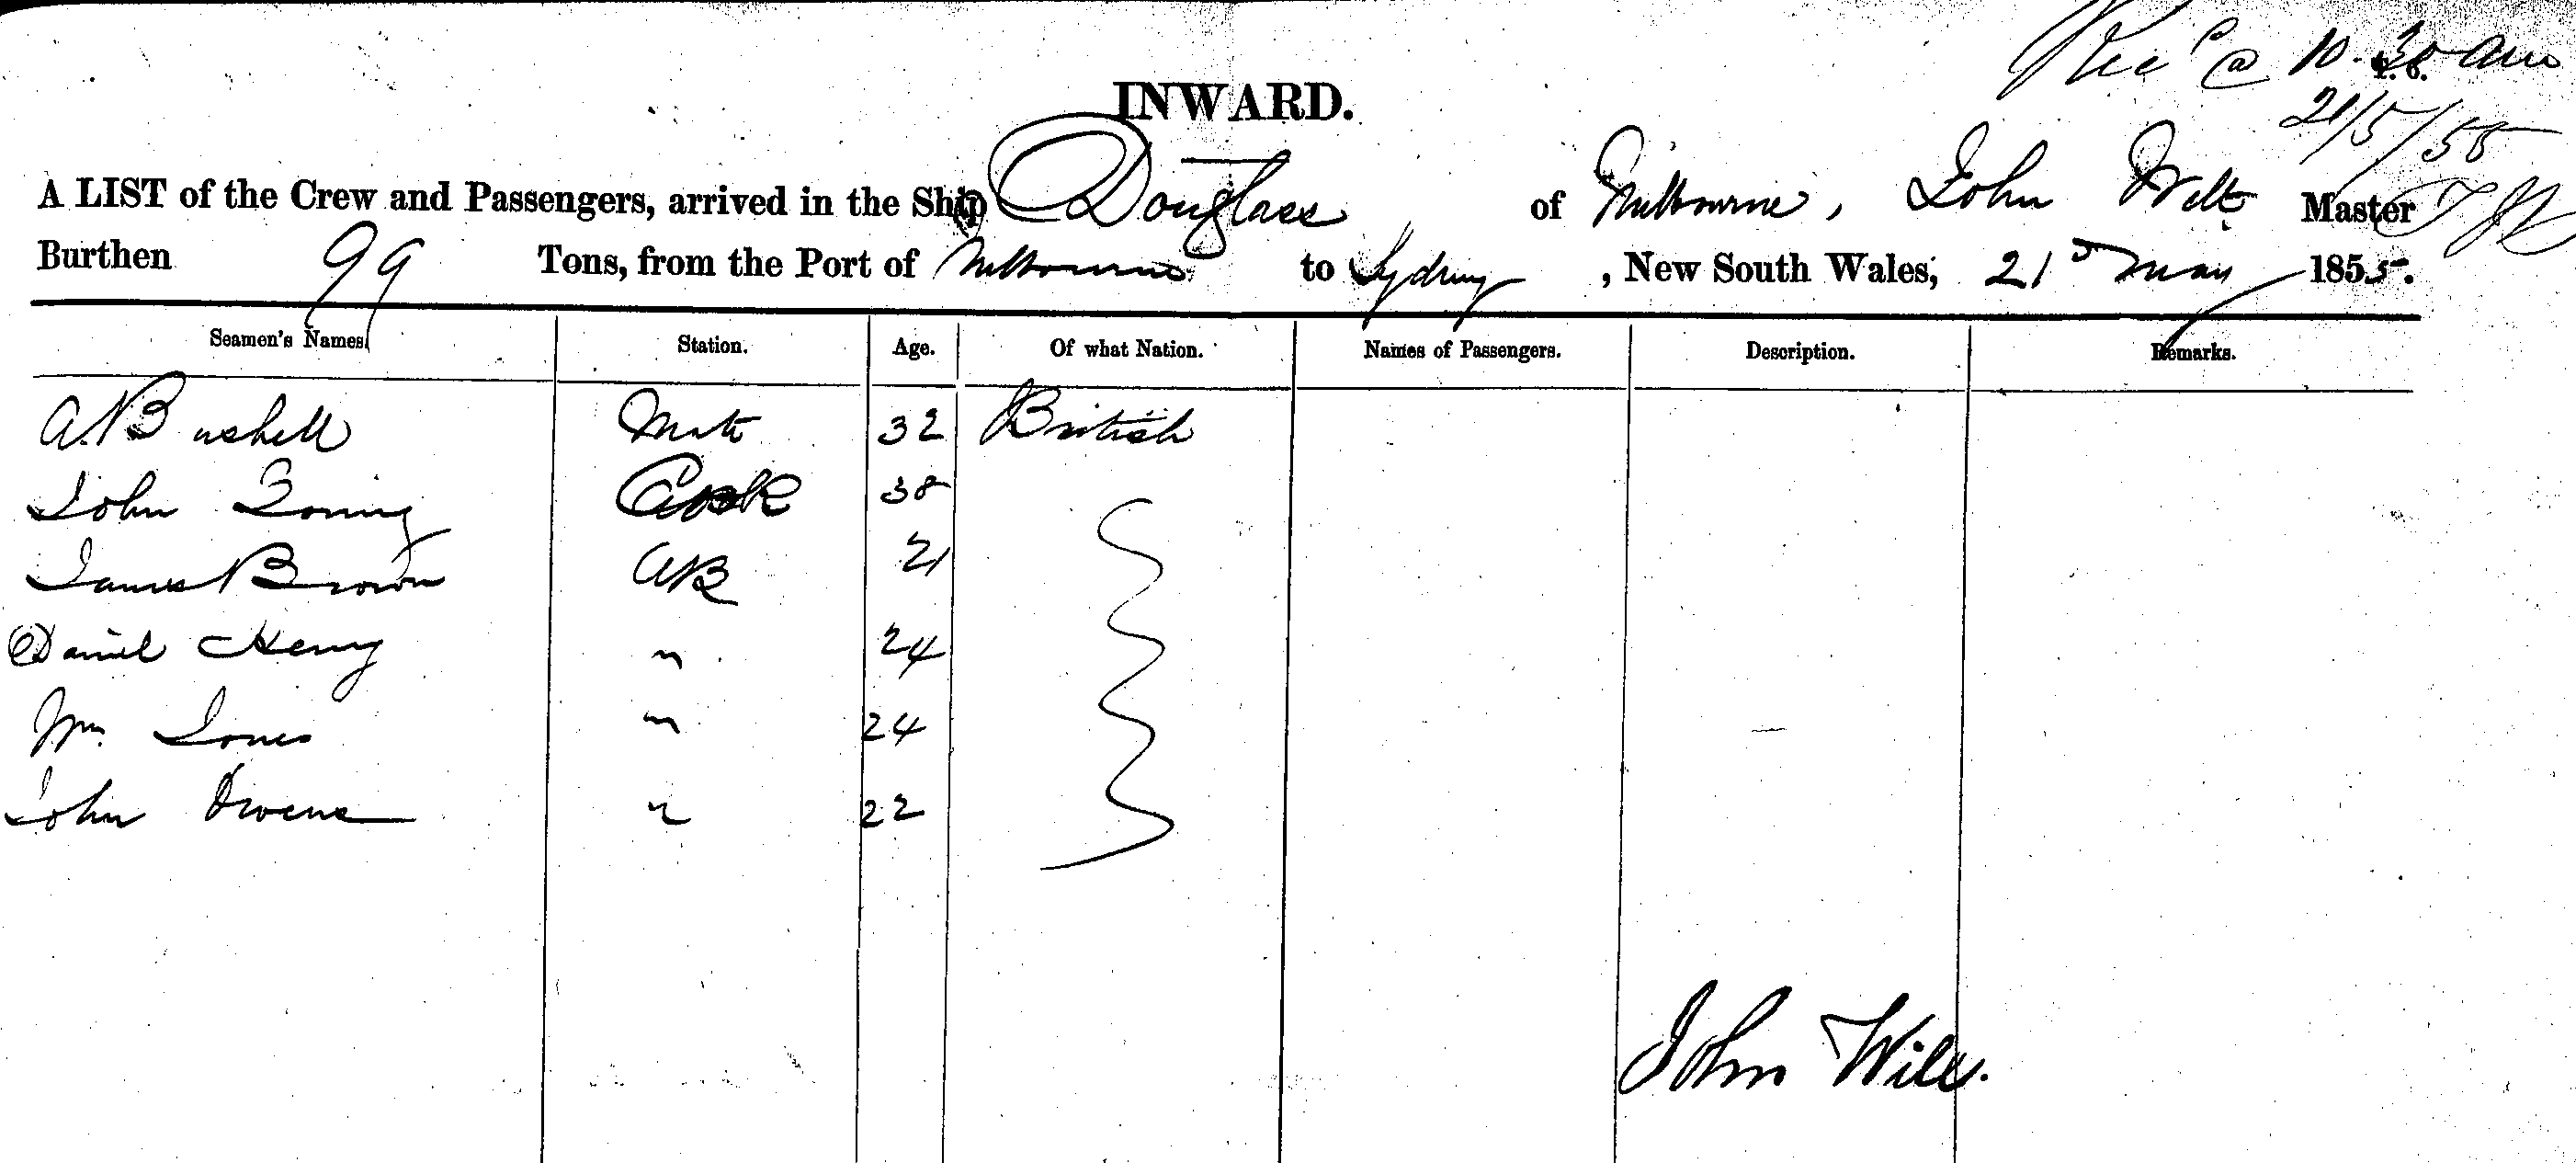 Recd @ 10.30 am
INWARD.
21/5/55
A LIST of the Crew and Passengers, arrived in the Ship Douglass of Melbourne, John Master
Burthen 99 Tons, from the Port of Melbourne to Sydney, New South Wales, 21st May 1855.
Seamen's Names. Station. Age. Of what Nation. Names of Passengers. Description. Remarks.
A Bushell Mate 32 British
John Cook 38
James Brown AB 21
Daniel Henry " 24
Wm. Jones " 24
John Owens " 22
John